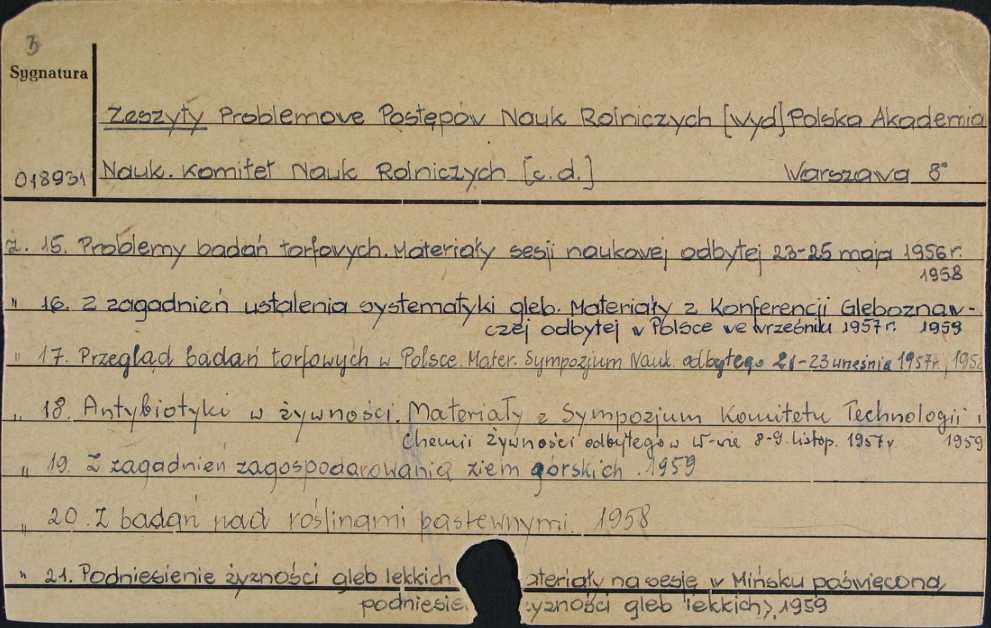 3
Sygnatura
Zeszyty Problemove Postępów Nauk Rolniczych [wyd] Polska Akademia
018931 Nauk. Komitet Nauk Rolniczych [c.d.] Warszawa 8°
z. 15. Problemy badań torfovych. Materiały sesji naukovej odbytej 23-25 maja 1956 r.
1958
" 16. Z zagadnień ustalenia systematyki gleb. Materiały z Konferencji Gleboznav-
czej odbytej v Polsce ve wrześniu 1957 r. 1959
" 17. Przegląd badań torfowych w Polsce. Mater. Sympozjum Nauk. odbytego 21-23 września 1957 r.,
" 18. Antybiotyki w żywności. Materiały z Sympozjum Komitetu Technologii i
Chemii Żywności odbytego w W-wie 8-9. listop. 1957 r. 1959
" 19. Z zagadnień zagospodarowania ziem górskich. 1959
" 20. Z badań nad roślinami pastewnymi. 1958
" 21. Podniesienie żyzności gleb lekkich ateriały na sesję v Mińsku poświęconą
podniesie yzności gleb lekkich>, 1959